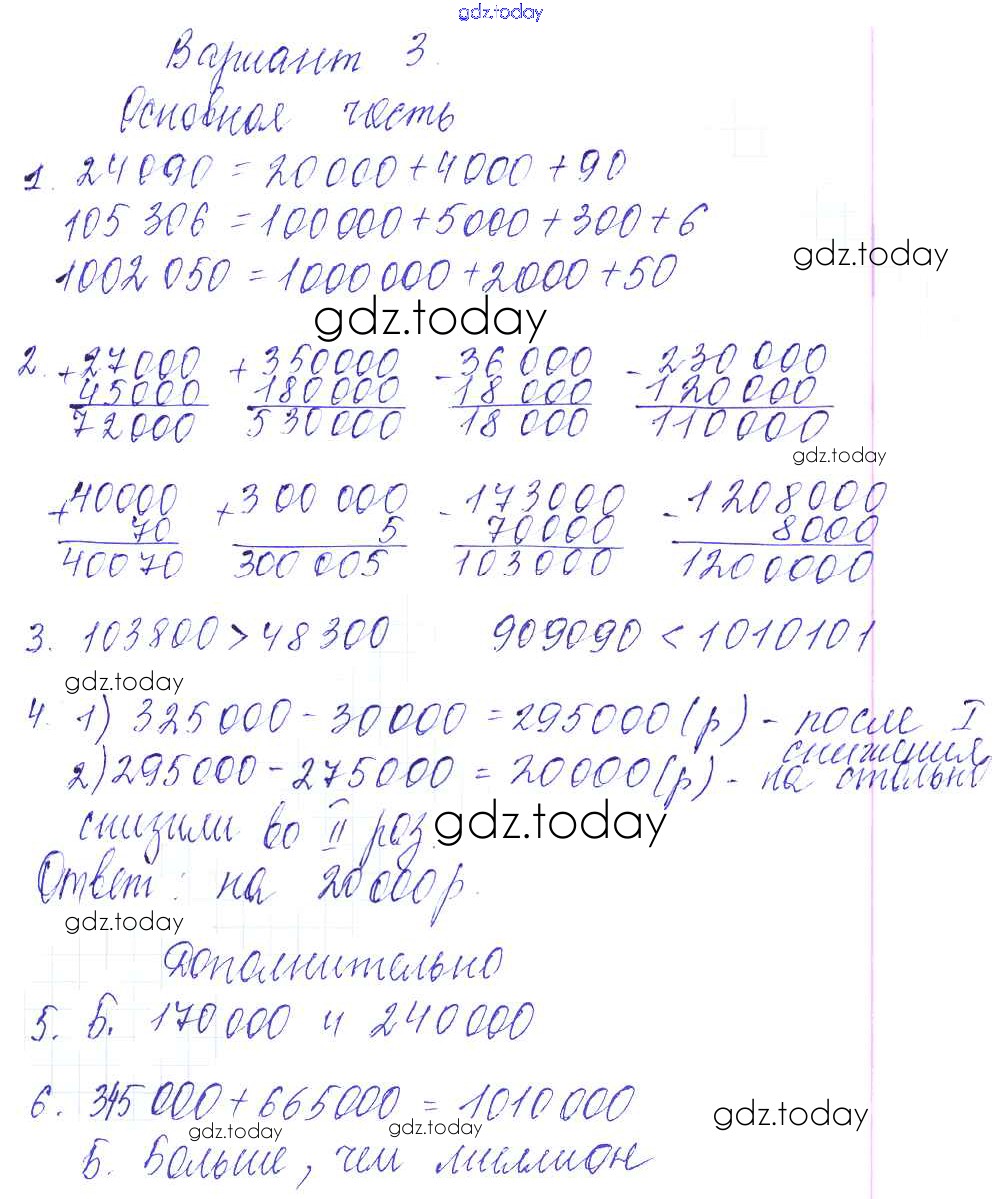 gdz.today
Вариант 3.
Основная часть
1. 24090 = 20000 + 4000 + 90
105 306 = 100 000 + 5000 + 300 + 6
gdz.today
1002 050 = 1000 000 + 2000 + 50
gdz.today
2. + 27000 + 350000 - 36 000 - 230 000
45000 180000 18 000 120 000
72000 530000 18 000 110000
gdz.today
+ 40000 + 300 000 - 173000 - 1208000
70 5 70000 8000
40070 300 005 103000 1200000
3. 103800 > 48300 909090 < 1010101
gdz.today
4. 1) 325 000 - 30000 = 295000 (р) - после I
снижения
2) 295000 - 275000 = 20000 (р) - на столько
снизили во II раз.
gdz.today
Ответ: на 20 000 р.
gdz.today
Дополнительно
5. Б. 170 000 и 240 000
6. 345 000 + 665000 = 1010 000
gdz.today
gdz.today gdz.today
Б. Больше, чем миллион